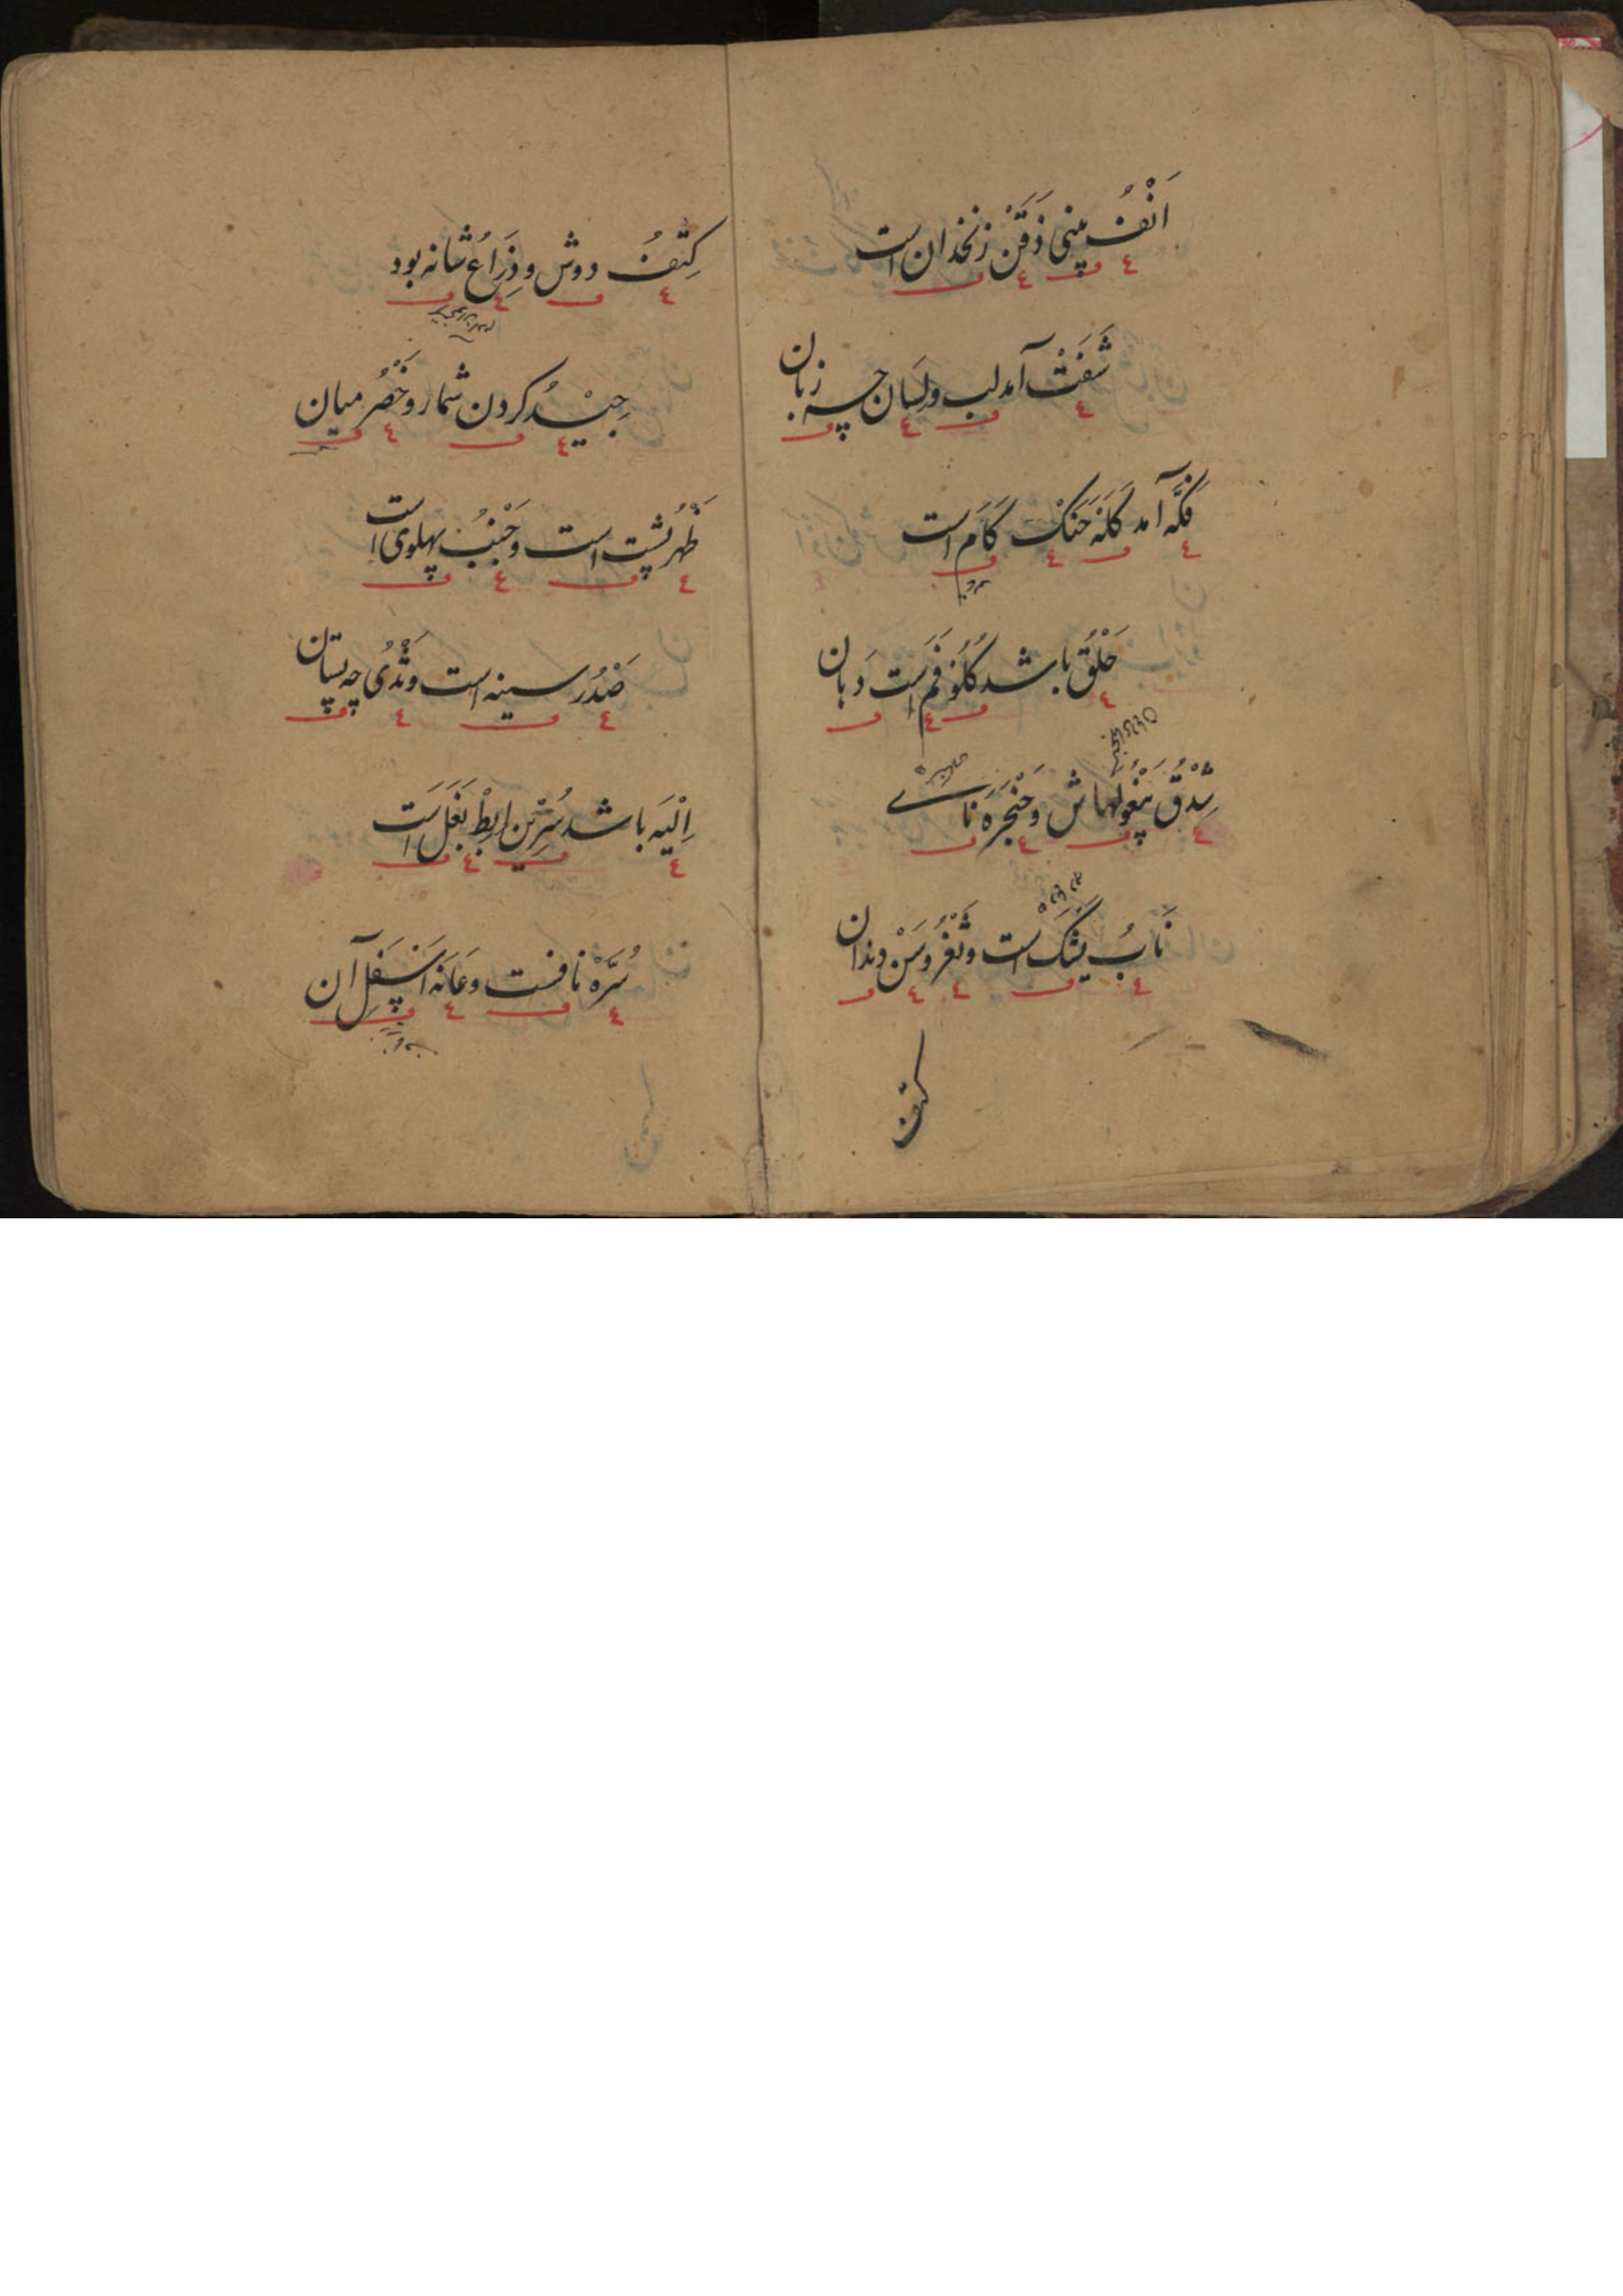 اَنْفُ بینی ذَقَنْ زنخدان است
شَفَتْ آمد لب و لِسَان چه زبان
فَکَّه آمد کَلَه حَنَکْ کَام است
حَلْقُ باشد کُلُوْ فَم است دَهان
شِدْقُ پَیْغُولهاش وحَنْجَرَه نَاے
نَابُ یَشْکْ است و ثَغْرُ و سَنْ دندان
کتف
کِتْفُ دوش و ذِرَاعُ شانه بود
جِیْدُ کردن شمار و خَصْرُ میان
ظَهْرُ پُشت است و جَنْبُ پهلوی است
صَدْرُ سینه است و ثَدْیُ چه پستان
اِلْیَه باشد سُرِیْن اِبِطْ بَغَلْ است
سُرَّهْ نافست و عَانَه اَسْفَلِ آن